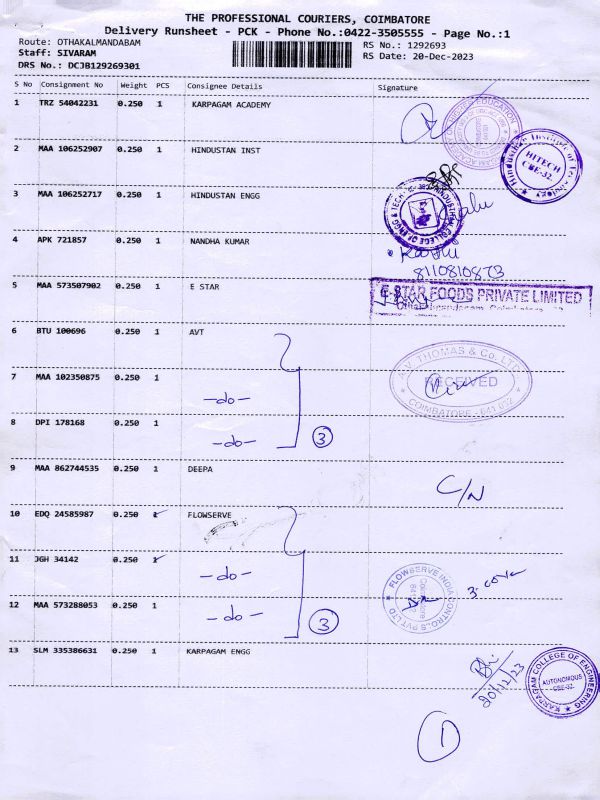 THE PROFESSIONAL COURIERS, COIMBATORE
Delivery Runsheet - PCK - Phone No.:0422-3505555 - Page No.:1
Route: OTHAKALMANDABAM RS No.: 1292693
Staff: SIVARAM RS Date: 20-Dec-2023
DRS No.: DCJB129269301
S No Consignment No Weight PCS Consignee Details Signature
1 TRZ 54042231 0.250 1 KARPAGAM ACADEMY
2 MAA 106252907 0.250 1 HINDUSTAN INST
HITECH
CBE-32.
3 MAA 106252717 0.250 1 HINDUSTAN ENGG
4 APK 721857 0.250 1 NANDHA KUMAR
8110810873
5 MAA 573507902 0.250 1 E STAR
E-STAR FOODS PRIVATE LIMITED
6 BTU 100696 0.250 1 AVT
A.V. THOMAS & Co. LTD.
7 MAA 102350875 0.250 1 -do-
RECEIVED
COIMBATORE - 641 032
8 DPI 178168 0.250 1 -do- 3
9 MAA 862744535 0.250 1 DEEPA C/N
10 EDQ 24585987 0.250 1 FLOWSERVE
11 JGH 34142 0.250 1 -do-
FLOWSERVE INDIA CONTROLS PVT LTD
3 cover
12 MAA 573288053 0.250 1 -do- 3
13 SLM 335386631 0.250 1 KARPAGAM ENGG
20/12/23
KARPAGAM COLLEGE OF ENGINEERING
AUTONOMOUS
CBE-32.
1